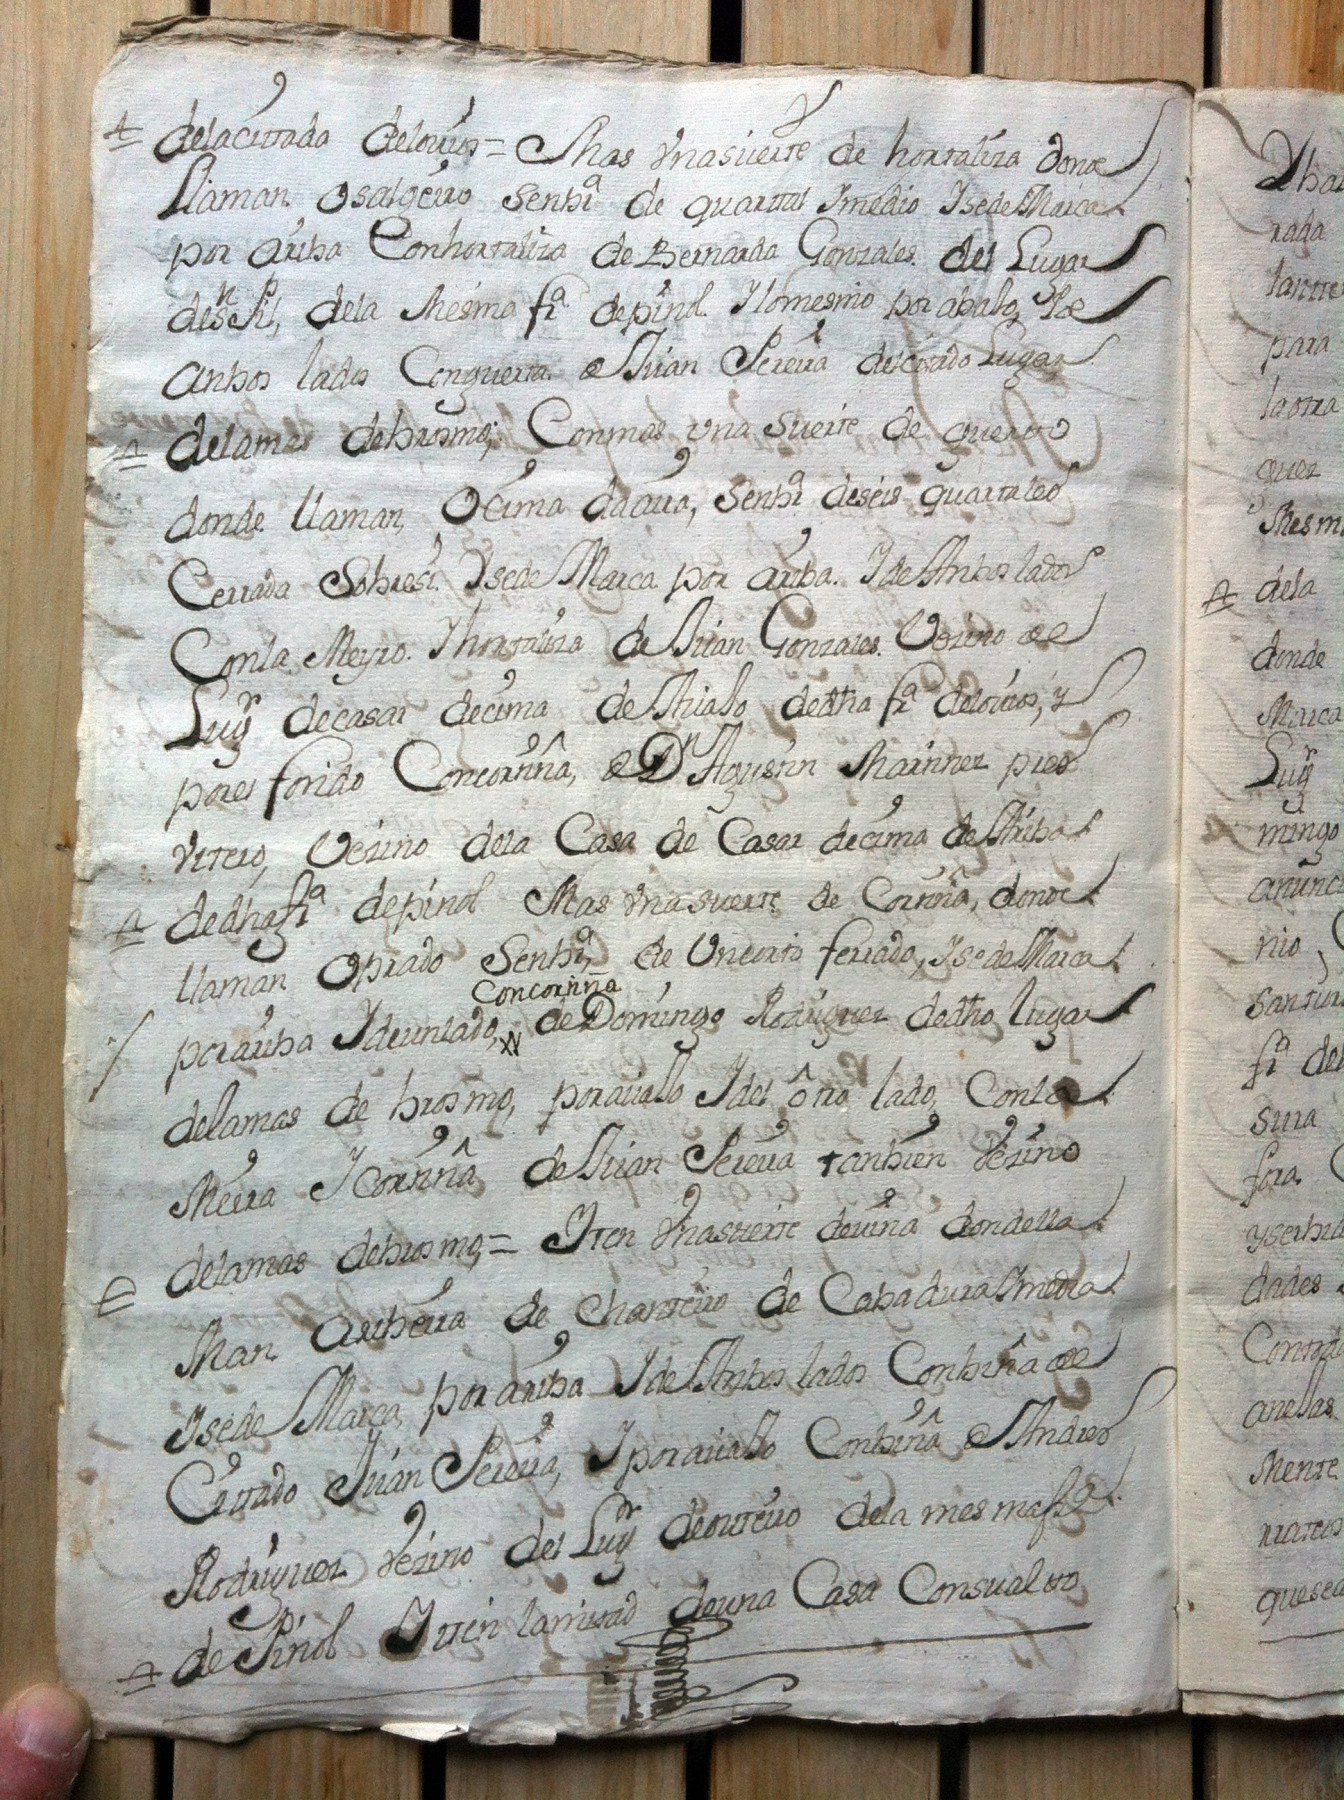 A delacitada delouios = Mas vnasuerte de hortaliza donde
llaman Osalgeiro Senbrª de quartal Imedio Isede Marca
por ariba Conhortaliza de Bernarda Gonzales del Lugar
de Sn Pil, dela Mesma fª depinol Ilomesmo por abalo, Ide
anbos lados Conguerta de Juan Pereira delcitado Lugar
A delamas debrosmo; Conmas vna suerte de guerto
donde llaman Ocima dacira, senbrª deseis quartales
Cerrada Sobresi. Isede Marca por ariba. Ide Anbos lados
Conla Meyro. Ihortaliza de Juan Gonzales Vezino del
Lugr decasar decima de Abialo dedtha fª delouios, y
porel fondo Concortiña, de Dn Agustin Martinez pres
vitero, Vezino dela Casa de Casar decima de Ariba
A dedha fª depinol Mas vnasuerte de Cortiña, donde
llaman Oprado Senbrª de Vncorto ferrado, Isede Marca
Concortiña
porariba Ideunlado, de Domingo Rodriguez dedtho lugar
delamas de brosmo, poravalo Idel ôtro lado, Conla
Meira Icortiña de Juan Pereira tanbien Vezino
delamas debrosmo = Iten Vnasuerte deviña dondella
Man Aribeira de Chanteiro de Cabadura Imedia
Isede Marca por ariba Ide Anbos lados Conbiña del
Citado Juan Pereira, Iporavallo Conbiña de Andres
Rodriguez Vezino del Lugr deouteiro dela mesma fª
A de Pinol Iten lamitad deuna Casa Consualtto
Yha
rada
lante
para
laotra
quez
Mesm
A dela
donde
Marca
Lugr
mingo
anunci
nio
santur
fª del
suia
fora
yserbi
dades
Contod
anellas
Mente
quesea